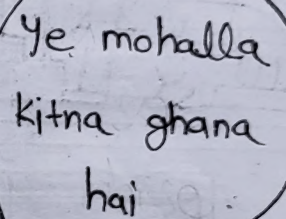 ye mohalla
kitna ghana
hai